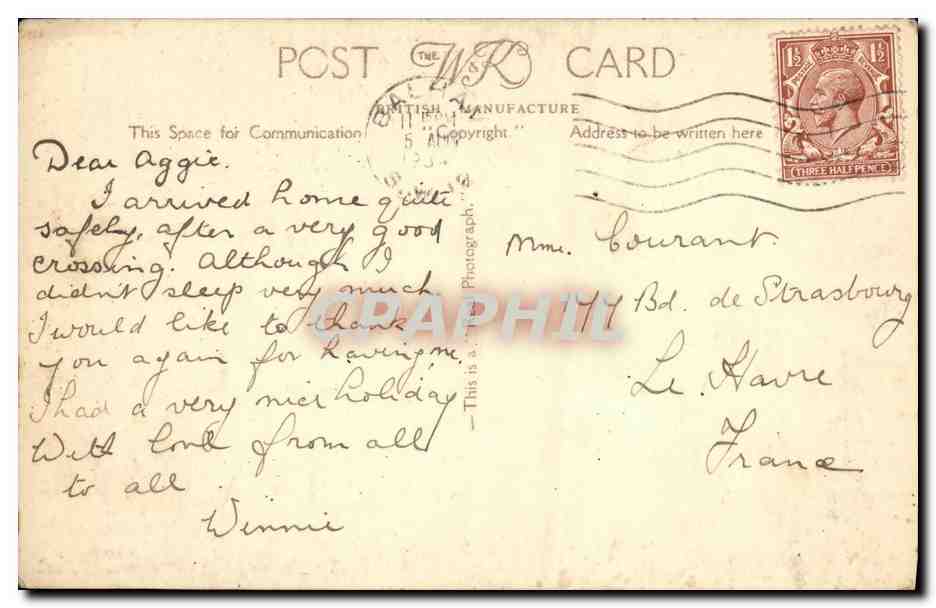 POST THE WR CARD
BRITISH MANUFACTURE
This Space for Communication "Copyright." Address to be written here
1½ 1½
POSTAGE REVENUE
THREE HALFPENCE
Dear Aggie.
I arrived home quite
safely, after a very good
crossing. Although I
didn't sleep very much
I would like to thank
you again for having me.
I had a very nice holiday
With love from all
to all.
Winnie
—This is a Photograph."
Mme. Courant.
Bd. de Strasbourg
Le Havre
France
CPAPHIL